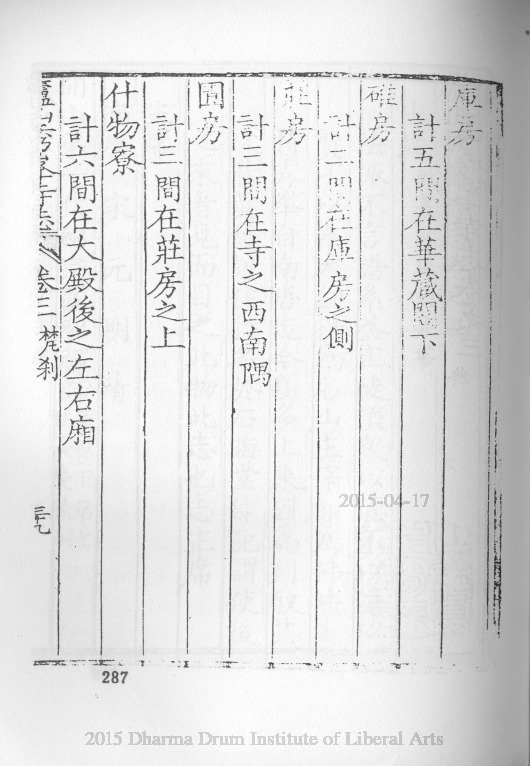 庫房
計五間在華藏閣下
碓房
計二間在庫房之側
莊房
計三間在寺之西南隅
園房
計三間在莊房之上
什物寮
計六間在大殿後之左右廂
卷三 梵剎
三九
287
2015-04-17
2015 Dharma Drum Institute of Liberal Arts